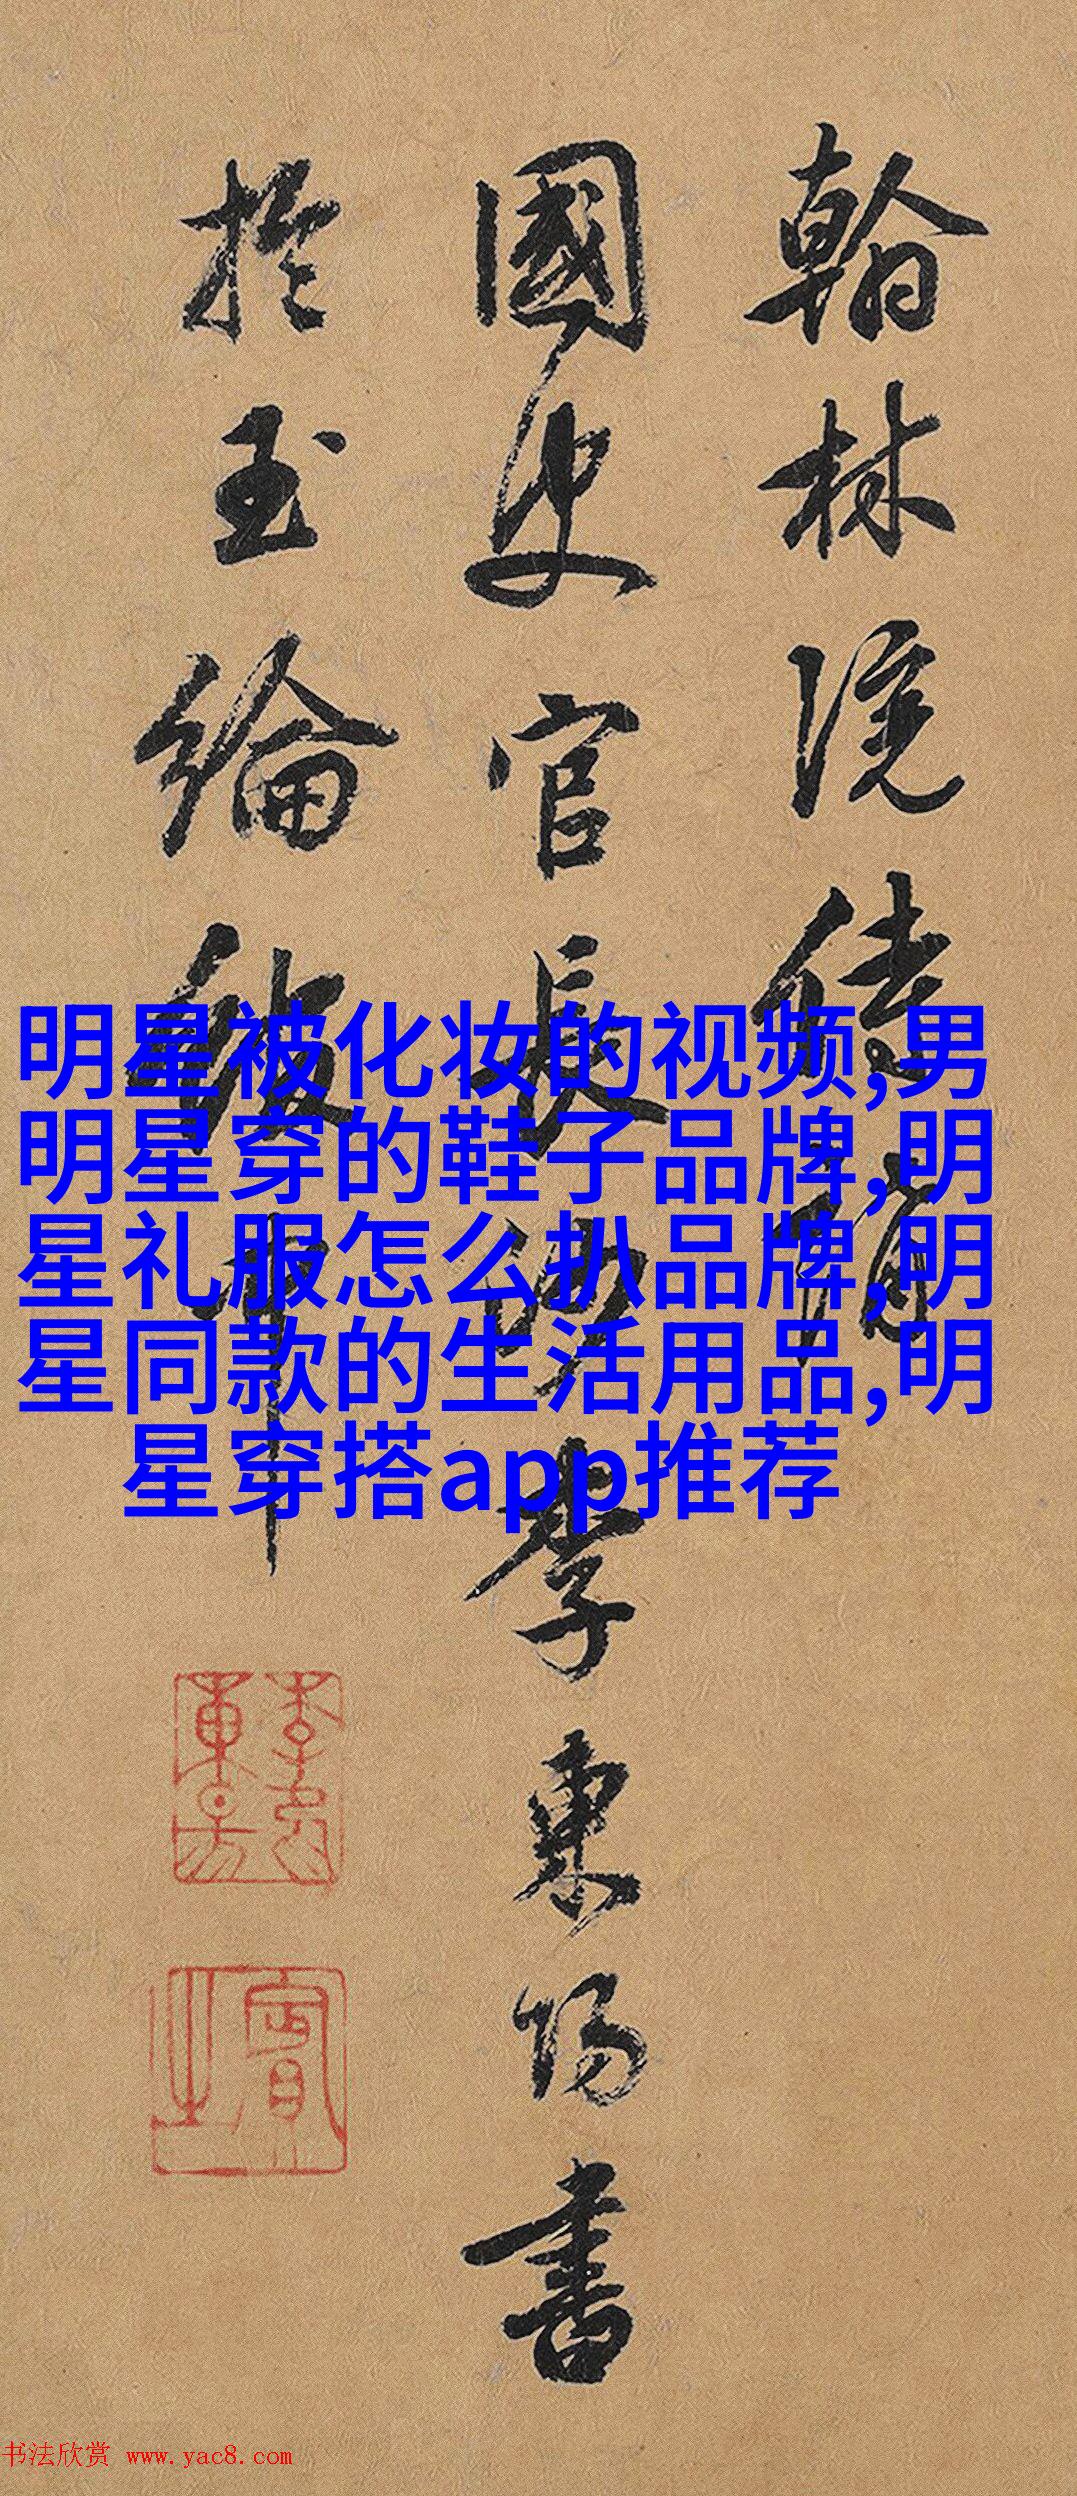 翰林院
國史官長沙李東陽書
於玉綸
明星被化妆的视频,男
明星穿的鞋子品牌,明
星礼服怎么扒品牌,明
星同款的生活用品,明
星穿搭app推荐
賓之
书法欣赏 www.yac8.com